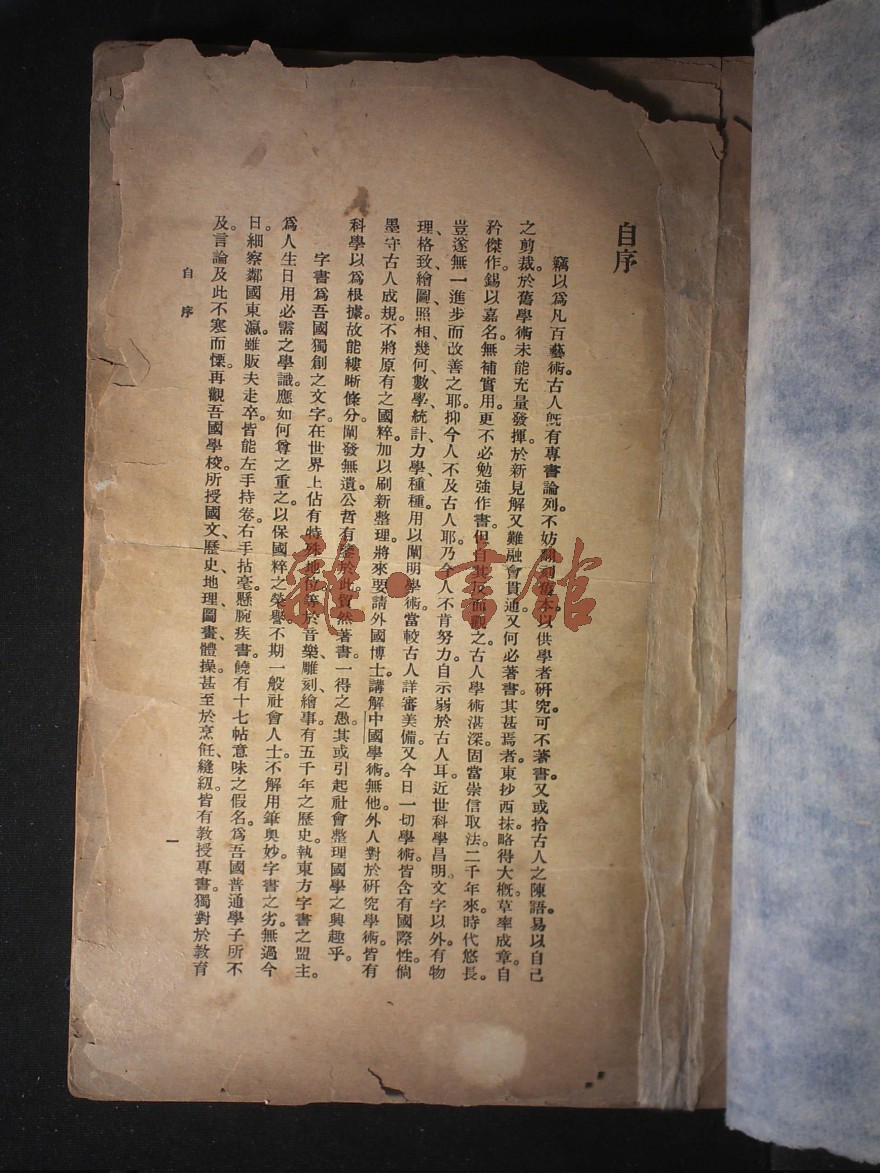 自序
竊以爲凡百藝術。古人旣有專書論列。不妨翻刻舊本以供學者研究。可不著書。又或拾古人之陳語。易以自己
之剪裁。於舊學術未能充量發揮。於新見解又難融會貫通。又何必著書。其甚焉者。東抄西抹。略得大概。草率成章。自
矜傑作。錫以嘉名。無補實用。更不必勉強作書。但自其反而觀之。古人學術湛深。固當崇信取法。二千年來。時代悠長。
豈遂無一進步而改善之耶。抑今人不及古人耶。乃今人不肯努力。自示弱於古人耳。近世科學昌明。文字以外。有物
理、格致、繪圖、照相、幾何、數學、統計、力學、種種。用以闡明學術。當較古人詳審美備。又今日一切學術。皆含有國際性。倘
墨守古人成規。不將原有之國粹。加以刷新整理。將來要請外國博士。講解中國學術。無他。外人對於研究學術。皆有
科學以爲根據。故能縷晰條分。闡發無遺。公哲有鑒於此。貿然著書。一得之愚。其或引起社會整理國學之興趣乎。
字書爲吾國獨創之文字。在世界上佔有特殊地位。等於音樂、雕刻、繪事。有五千年之歷史。執東方字書之盟主。
爲人生日用必需之學識。應如何尊之重之。以保國粹之榮譽。不期一般社會人士。不解用筆奥妙。字書之劣。無過今
日。細察鄰國東瀛。雖販夫走卒。皆能左手持卷。右手拈毫。懸腕疾書。饒有十七帖意味之假名。爲吾國普通學子所不
及。言論及此。不寒而慄。再觀吾國學校。所授國文、歷史、地理、圖畫、體操、甚至於烹飪、縫紉。皆有教授專書。獨對於教育
自序
一
雜·書館